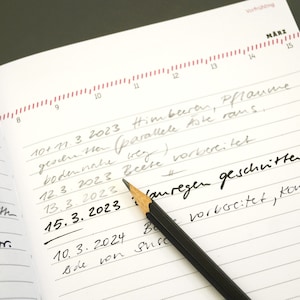 Vorfrühling
MÄRZ
8 9 10 11 12 13 14 15
10+11.3.2023 Himbeeren, Pflaume
geschnitten (parallele Äste raus,
bodennahe weg)
12.3.2023 Beete vorbereitet
13.3.2023 "
15.3.2023 Blauregen geschnitten
10.3.2024 Beete vorbereitet,
Erde von